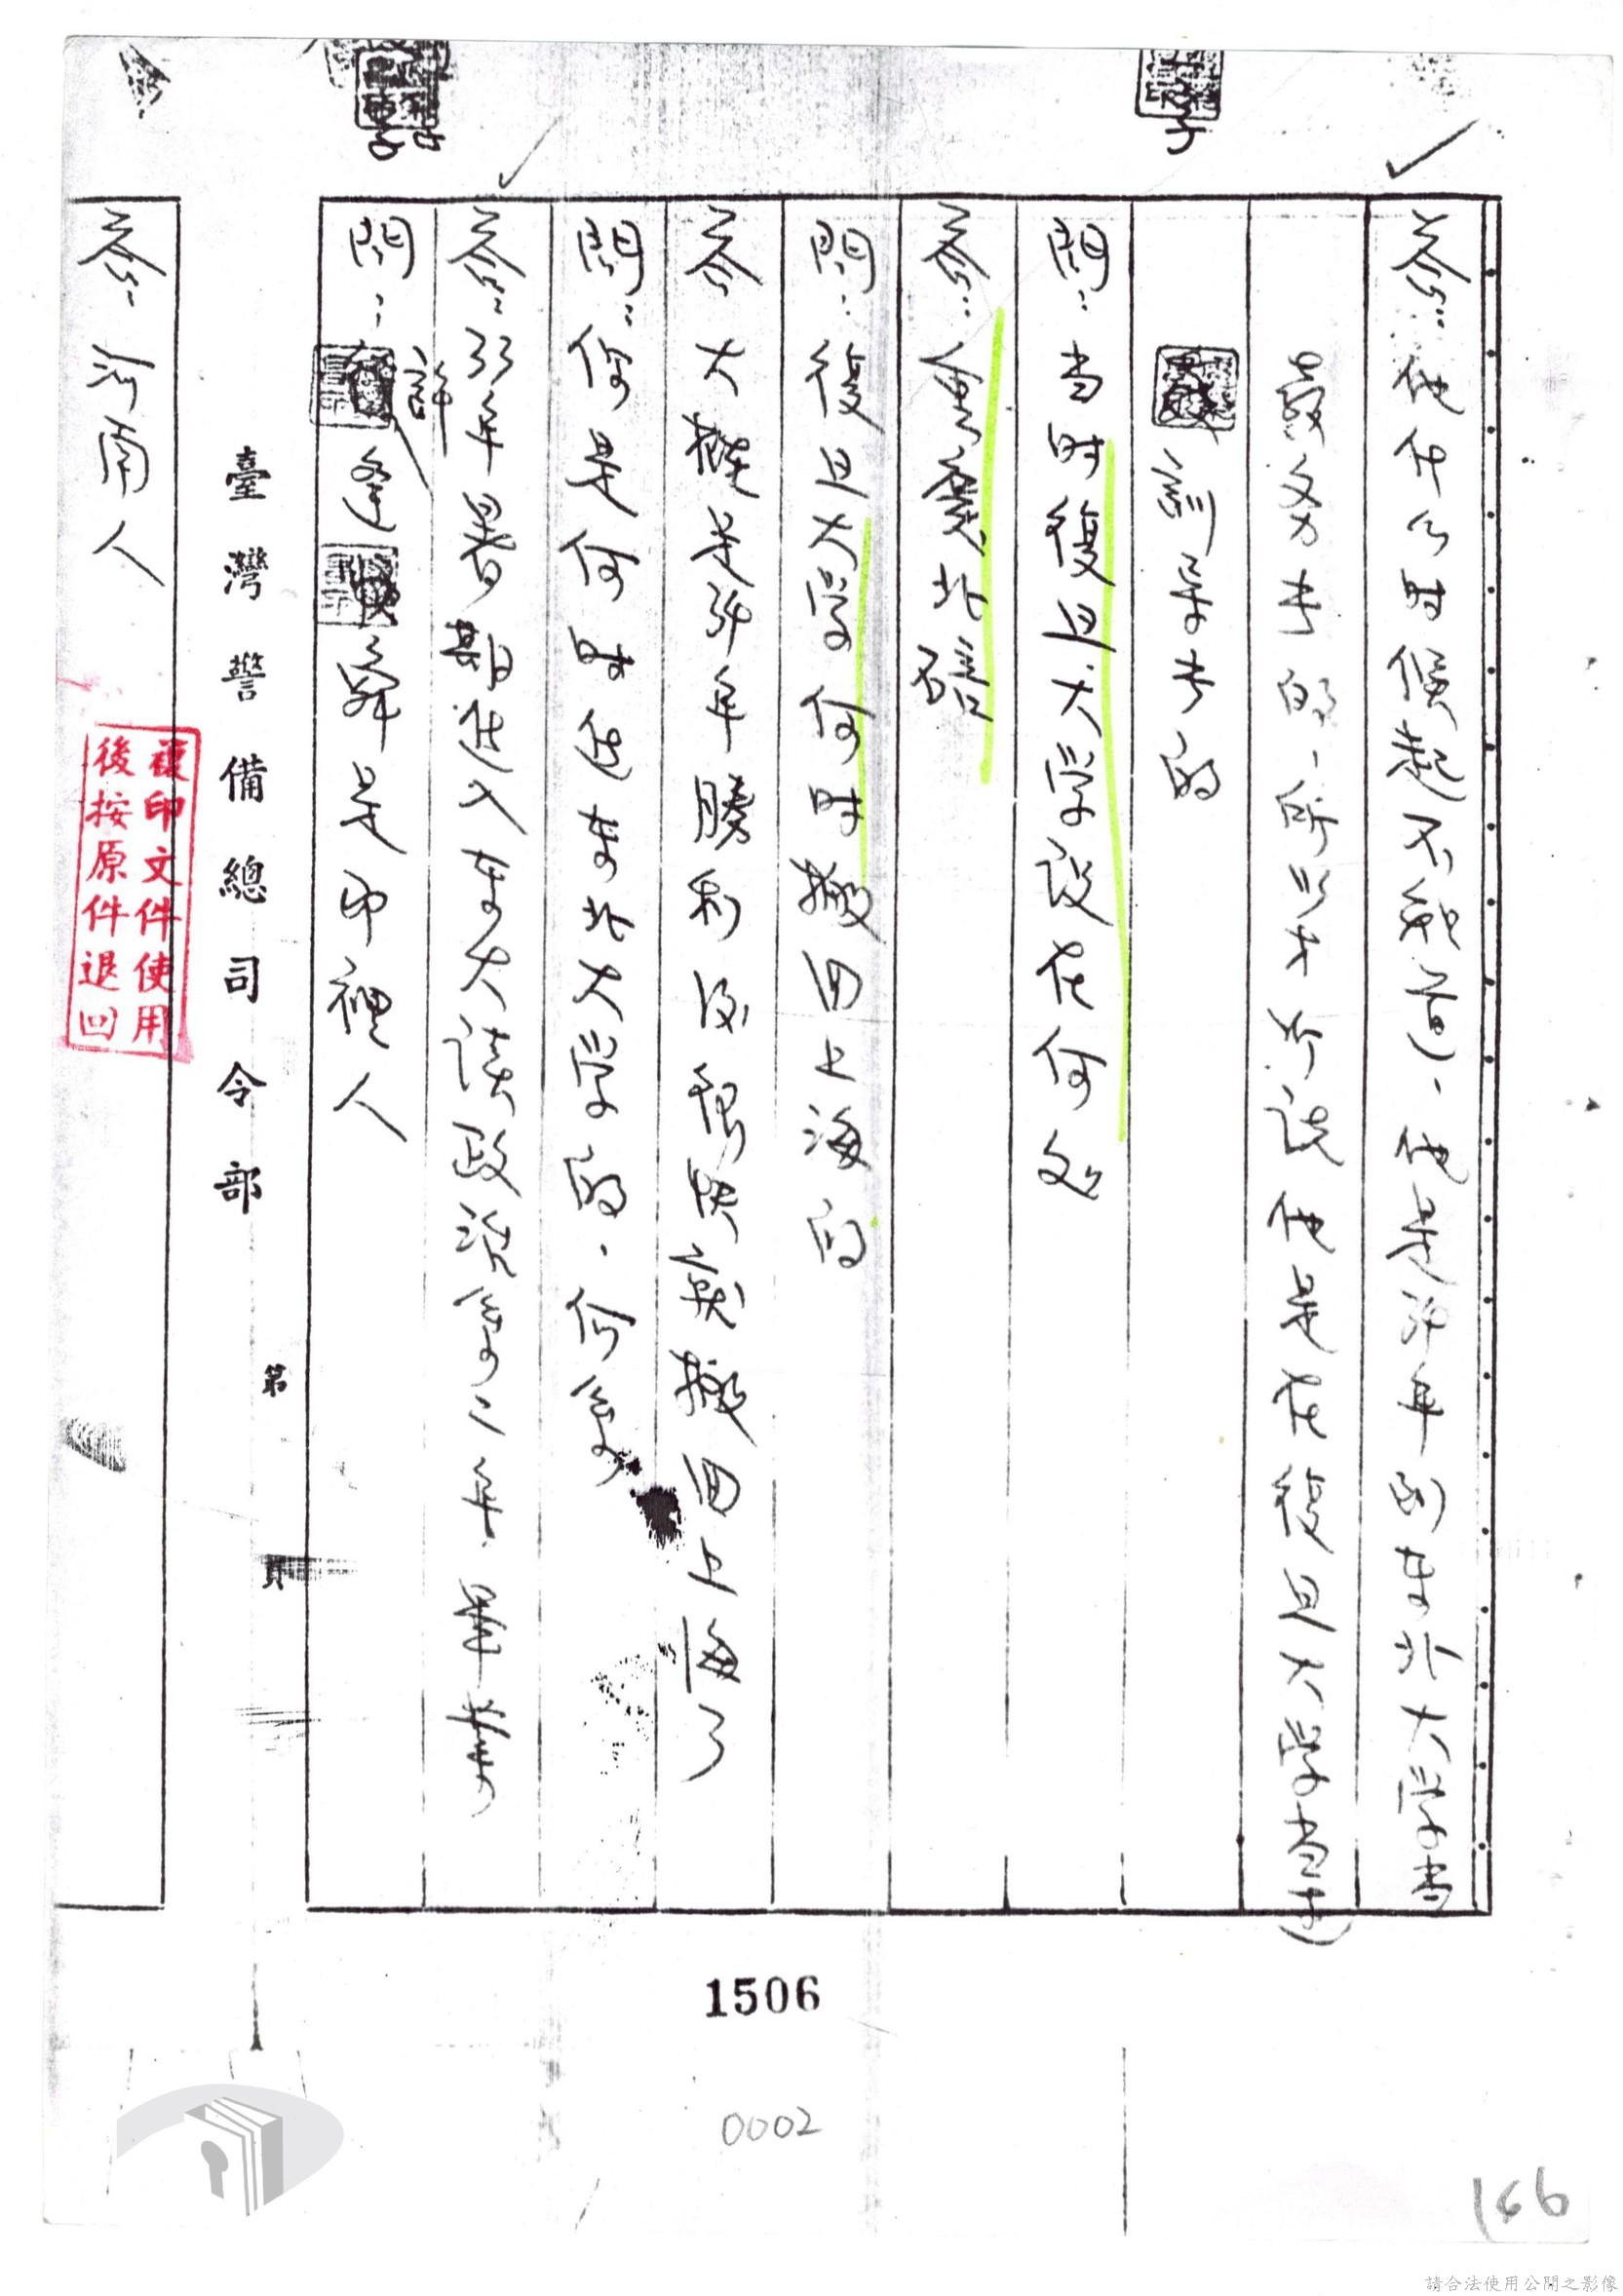 答：他什么时候起不知道，他是34年到東北大学当
教务長的，所以才听说他是在復旦大学当过
訓导長的
問：当时復旦大学設在何处
答：重慶北碚
問：復旦大学何时搬回上海的
答 大概是34年勝利后很快就搬回上海了
問：你是何时进东北大学的，何系
答：33年暑期进入东大读政治系二年畢業
問：許逢舜是那裡人
臺灣警備總司令部
第 頁
答：河南人
複印文件使用
後按原件退回
1506
0002
166
請合法使用公開之影像